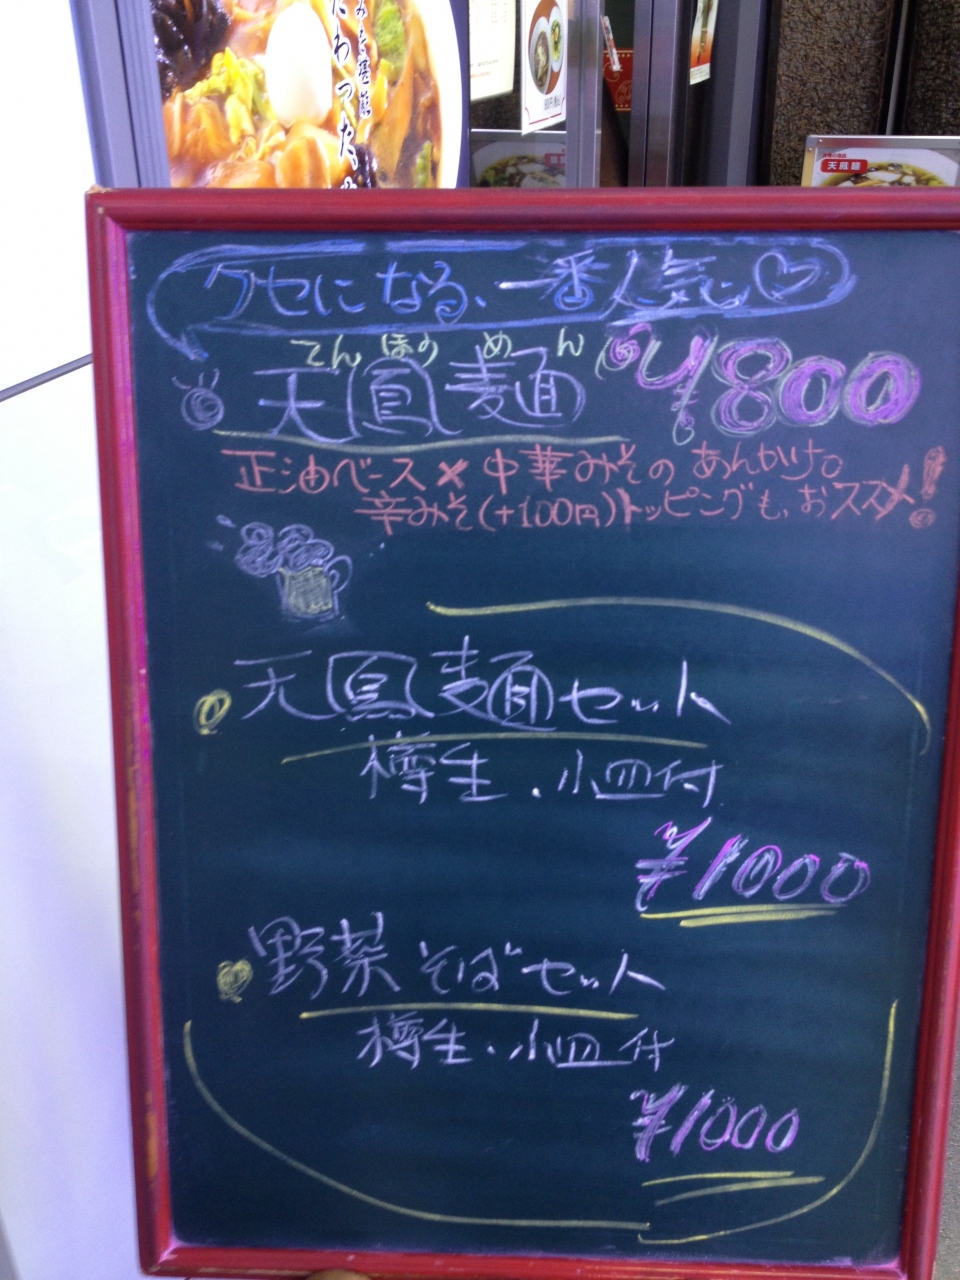 クセになる、一番人気に♡
てんほうめん
天鳳麺 ¥800
正油ベース×中華みそのあんかけ。
辛みそ(+100円)トッピングも、おススメ!
天鳳麺セット
樽生・小皿付
¥1000
野菜そばセット
樽生・小皿付
¥1000
天鳳麺